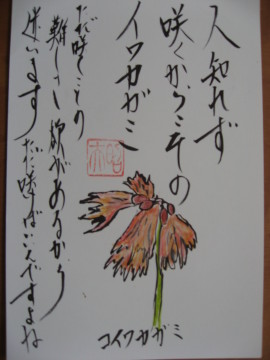 人知れず
咲くからこその
イワカガミ
ただ咲くことの
難しさ欲があるから
迷います
ただ咲けばいいんですよね
コイワカガミ